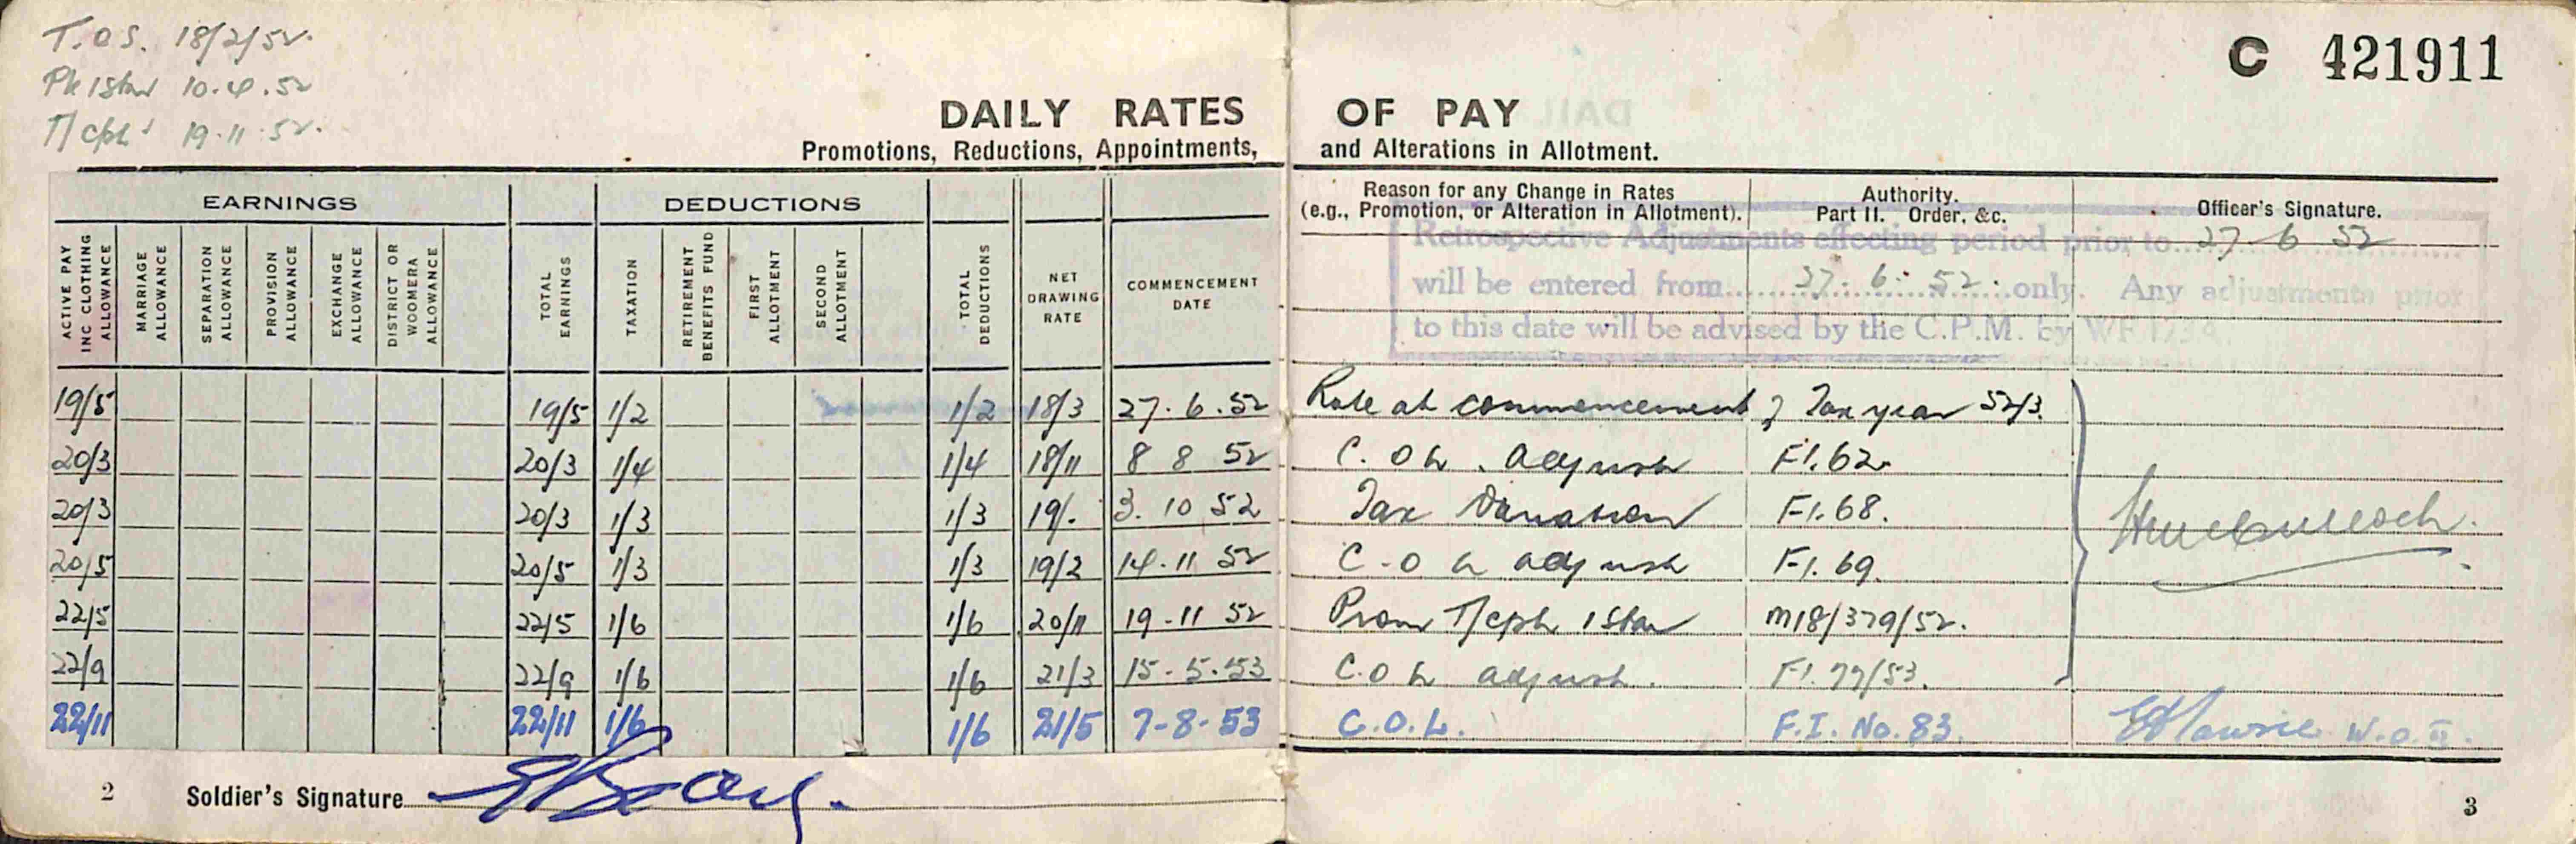 T.O.S. 18/2/52.
Pte 1 Star 10.4.52
T/Cpl 19.11.52.
C 421911
DAILY RATES OF PAY
Promotions, Reductions, Appointments, and Alterations in Allotment.
EARNINGS DEDUCTIONS
ACTIVE PAY INC CLOTHING ALLOWANCE MARRIAGE ALLOWANCE SEPARATION ALLOWANCE PROVISION ALLOWANCE EXCHANGE ALLOWANCE DISTRICT OR WOOMERA ALLOWANCE TOTAL EARNINGS TAXATION RETIREMENT BENEFITS FUND FIRST ALLOTMENT SECOND ALLOTMENT TOTAL DEDUCTIONS NET DRAWING RATE COMMENCEMENT DATE
Reason for any Change in Rates (e.g., Promotion, or Alteration in Allotment). Authority. Part II. Order, &c. Officer's Signature.
Retrospective Adjustments effecting period prior to 27 6 52
will be entered from 27.6.52 only. Any adjustments prior
to this date will be advised by the C.P.M. by WF 1734.
19/5 19/5 1/2 1/2 18/3 27.6.52 Rate at commencement of Tax year 52/3.
20/3 20/3 1/4 1/4 18/11 8 8 52 C.O.L. adjust F1.62.
20/3 20/3 1/3 1/3 19/. 3.10 52 Tax Variation F1.68.
20/5 20/5 1/3 1/3 19/2 14.11 52 C.O.L adjust F1.69.
22/5 22/5 1/6 1/6 20/11 19-11 52 Prom T/Cpl 1 Star M18/379/52.
22/9 22/9 1/6 1/6 21/3 15-5-53 C.O.L adjust. F1.77/53.
22/11 22/11 1/6 1/6 21/5 7-8-53 C.O.L. F.I. No. 83. W.O.II.
2 Soldier's Signature 3